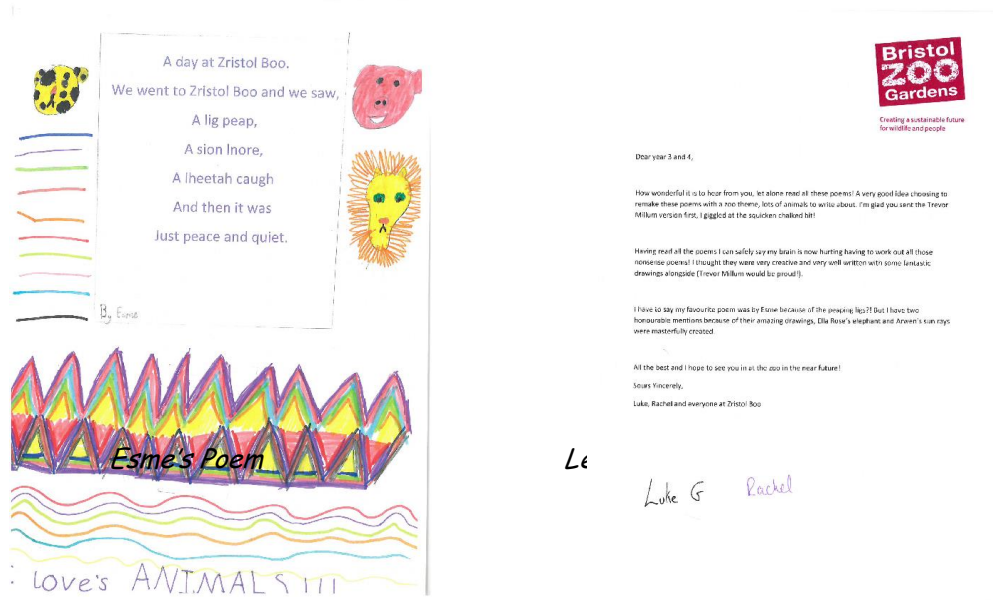 A day at Zristol Boo.
We went to Zristol Boo and we saw,
A lig peap,
A sion lnore,
A lheetah caugh
And then it was
Just peace and quiet.
By Esme
Esme's Poem
: Love's ANIMALS !!!
Bristol
ZOO
Gardens
Creating a sustainable future
for wildlife and people
Dear year 3 and 4,
How wonderful it is to hear from you, let alone read all these poems! A very good idea choosing to
remake these poems with a zoo theme, lots of animals to write about. I'm glad you sent the Trevor
Millum version first, I giggled at the squicken chalked hit!
Having read all the poems I can safely say my brain is now hurting having to work out all those
nonsense poems! I thought they were very creative and very well written with some fantastic
drawings alongside (Trevor Millum would be proud!).
I have to say my favourite poem was by Esme because of the peaping ligs?! But I have two
honourable mentions because of their amazing drawings, Ella Rose's elephant and Arwen's sun rays
were masterfully created
All the best and I hope to see you in at the zoo in the near future!
Sours Yincerely,
Luke, Rachel and everyone at Zristol Boo
Le
Luke G Rachel